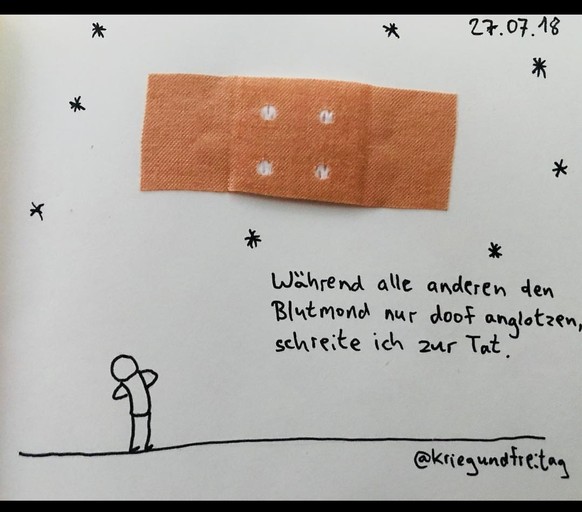 27.07.18
Während alle anderen den
Blutmond nur doof anglotzen,
schreite ich zur Tat.
@kriegundfreitag